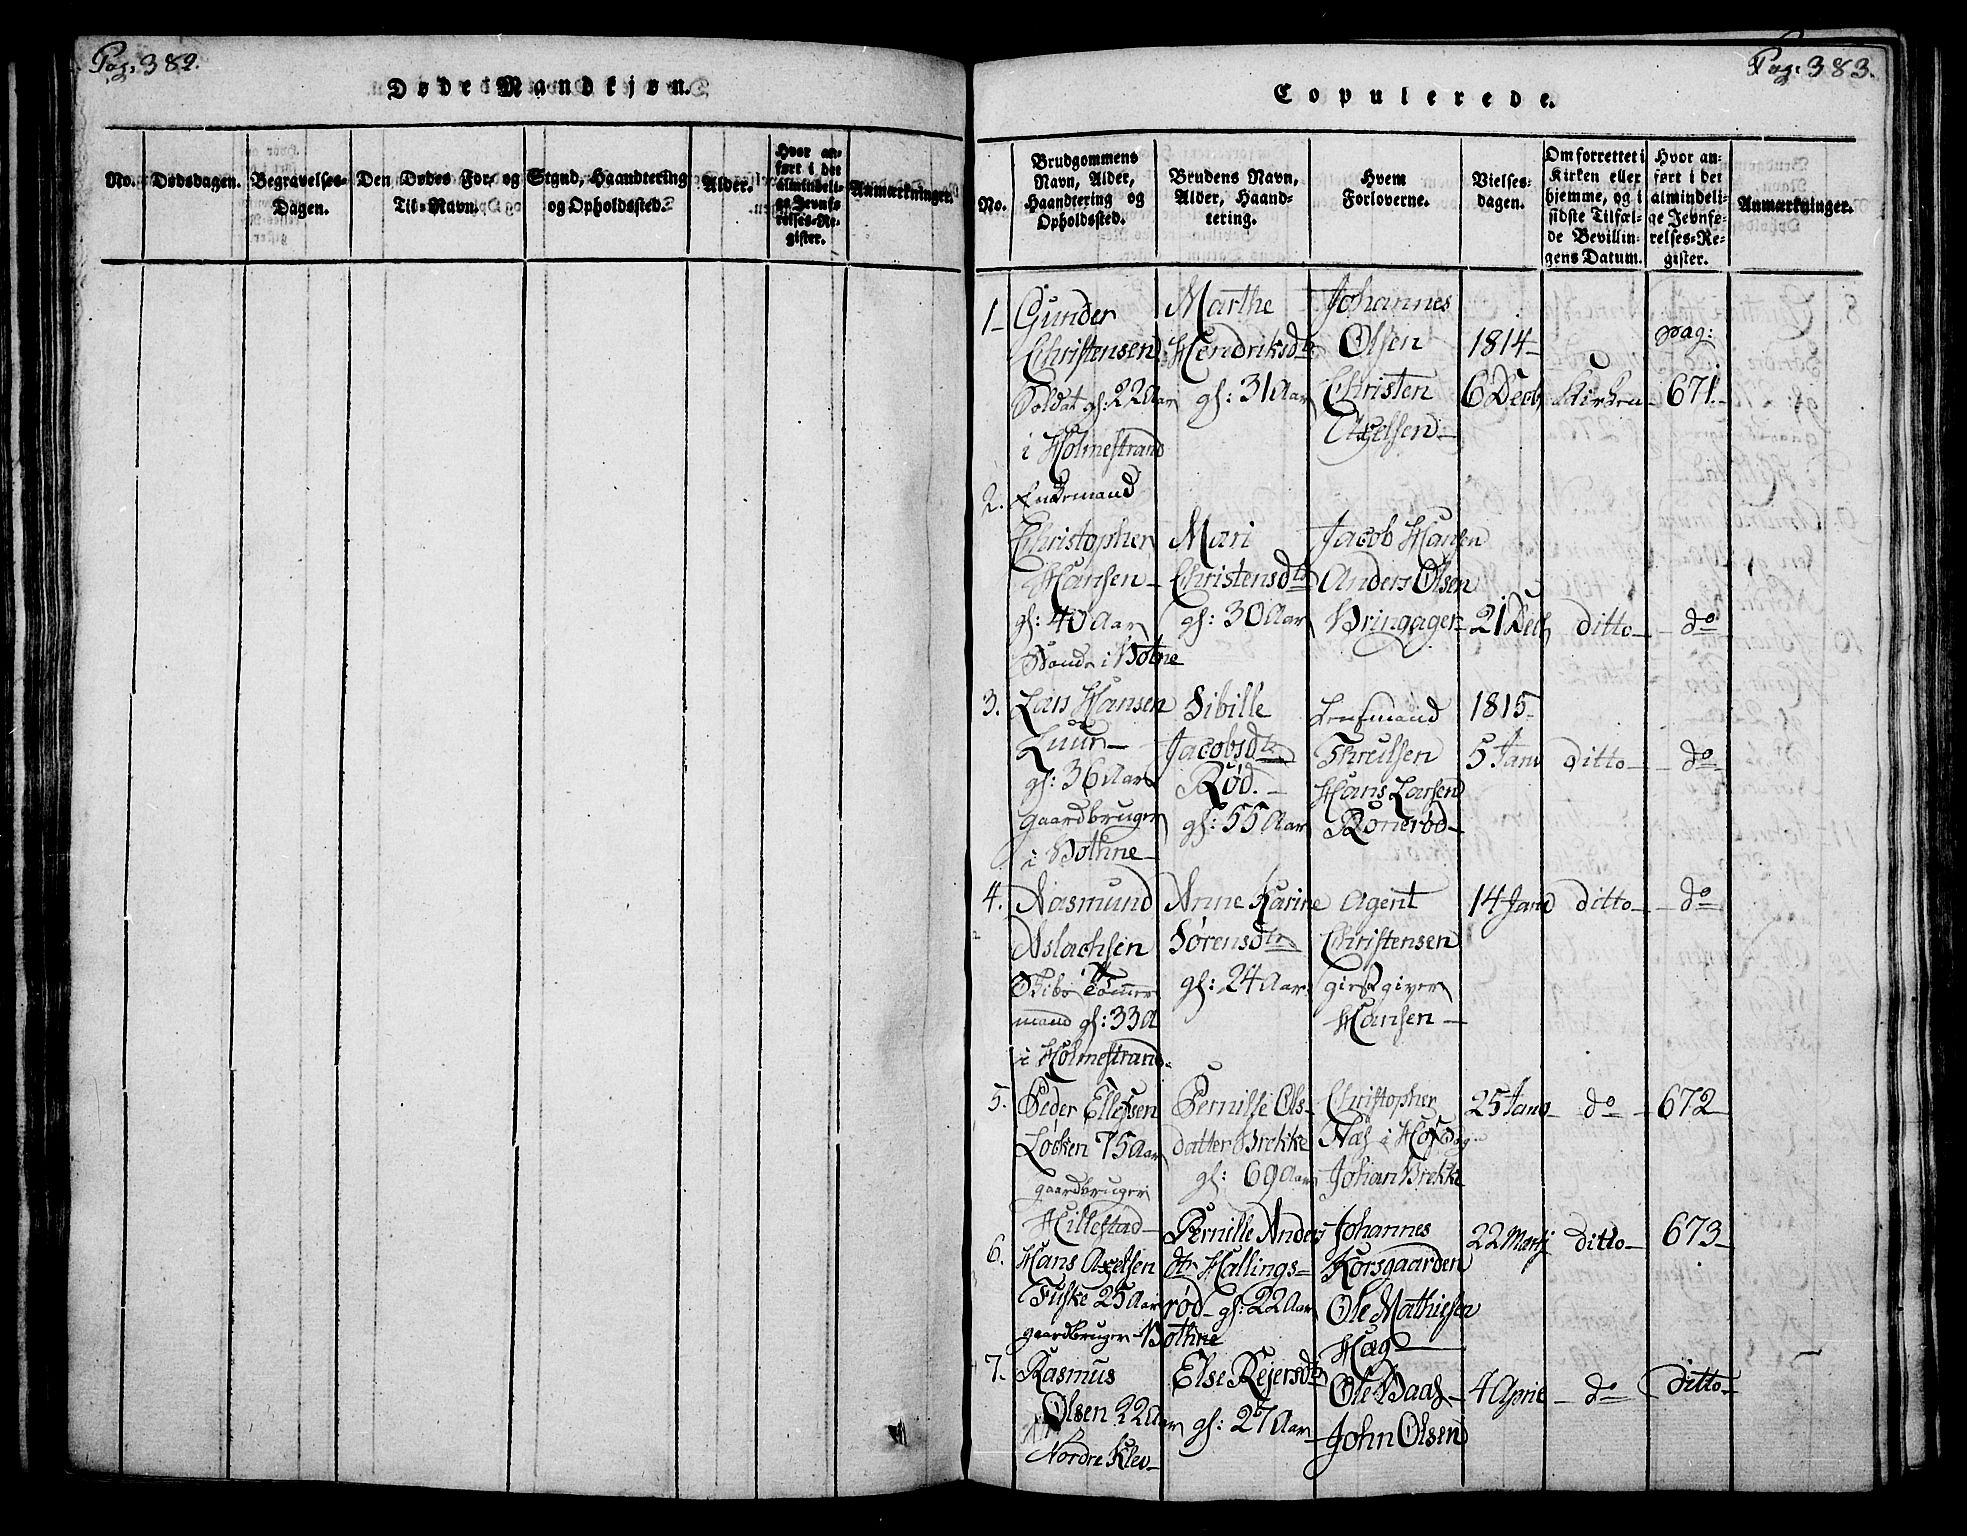 Pag. 382.
Døde Mandkjøn.
No. Dødsdagen. Begravelses-Dagen. Den Dødes For- og Til-Navn. Stand, Haandtering og Opholdssted. Alder. Hvor anført i det almindelige Jevnførelses-Register. Anmærkninger.
Pag. 383.
Copulerede.
No. Brudgommens Navn, Alder, Haandtering og Opholdssted. Brudens Navn, Alder, Haandtering. Hvem Forloverne. Vielsesdagen. Om forrettet i Kirken eller hjemme, og i sidste Tilfælde Bevillingens Datum. Hvor anført i det almindelige Jevnførelses-Register. Anmærkninger.
1 Gunder Marthe Johannes
Christensen Hendriksdtr Olsen 1814 pag:
Soldat gl: 22 Aar gl: 31 Aar Christen 6 Decb Kirken 671.
i Holmestrand Axelsen
2. Enkemand
Christopher Mari Jacob Hansen
Hansen Christensdtr Anders Olsen
gl: 40 Aar gl: 30 Aar Bringager 21 Decb ditto do
i Botne
3. Lars Hansen Sibille Lensmand 1815
Luur Jacobsdtr 5 Janv ditto do
gl: 36 Aar Rød. Hans Larsen
gaardbruger gl: 55 Aar Ronerød
i Bothne
4. Aasmund Anne Karine Agent 14 Janv ditto do
Aslachsen Sørensdtr Christensen
Skibs Tømmer gl: 24 Aar giestgiver
mand gl: 33 A Hansen
i Holmestrand
5. Peder Ellefsen Pernille Ols- Christopher 25 Janv do 672
Løcken 75 Aar datter Brekke Næs i Hof og
gaardbruger gl: 69 Aar Johan Brekke
Hillestad Pernille Anders Johannes 22 Martj ditto 673
6. Hans Axelsen dtr Hallings- Korsgaarden
Fuske 25 Aar rød gl: 22 Aar Ole Mathiesen
gaardbruger Bothne Hæg
7. Rasmus Else Rejersdtr Ole Baas 4 April do ditto
Olsen 22 Aar gl: 27 Aar John Olsen
Nordre Klev